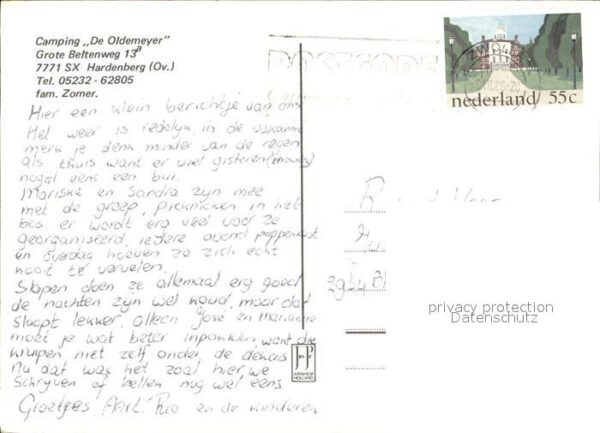 Camping „De Oldemeyer"
Grote Beltenweg 13a
7771 SX Hardenberg (Ov.)
Tel. 05232 - 62805
fam. Zomer.
POSTCODE
ZWOLLE
nederland 55c
Hier een klein berichtje van ons
Het weer is redelijk in de vakantie
merk je denk minder van de regen
als thuis want er viel gisteren
nogal eens een bui.
Mariska en Sandra zijn mee
met de groep, picknicken in het
bos er wordt erg veel voor ze
georganiseerd, iedere avond poppenkast
en overdag hoeven ze zich echt
nooit te vervelen.
Slapen doen ze allemaal erg goed
de nachten zijn wel koud, maar dat
slaapt lekker, alleen José en Marianne
moet je wat beter inpakken, want die
kruipen met zelf onder de dekens
Nu dat was het zoal hier, we
schrijven of bellen nog wel eens
Groetjes Aart, Rie en de kinderen
R
privacy protection
Datenschutz
JosP
ARNHEM
HOLLAND